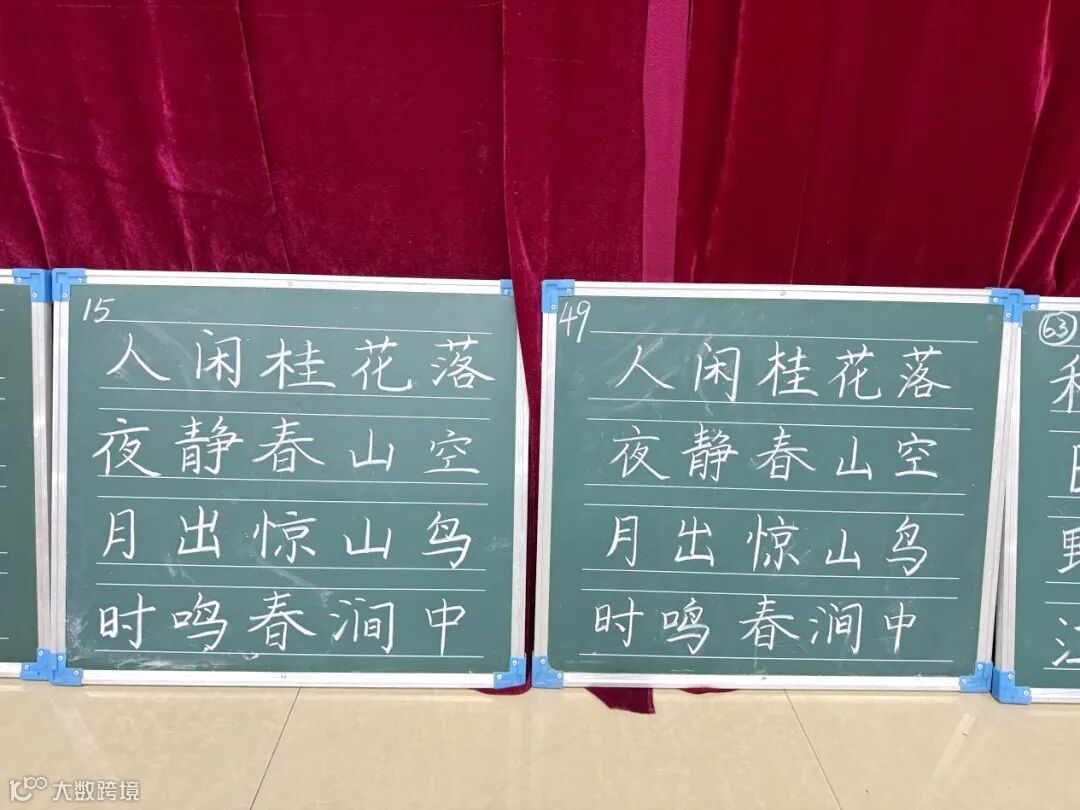 15
人闲桂花落
夜静春山空
月出惊山鸟
时鸣春涧中
49
人闲桂花落
夜静春山空
月出惊山鸟
时鸣春涧中
63
野
江
大数跨境